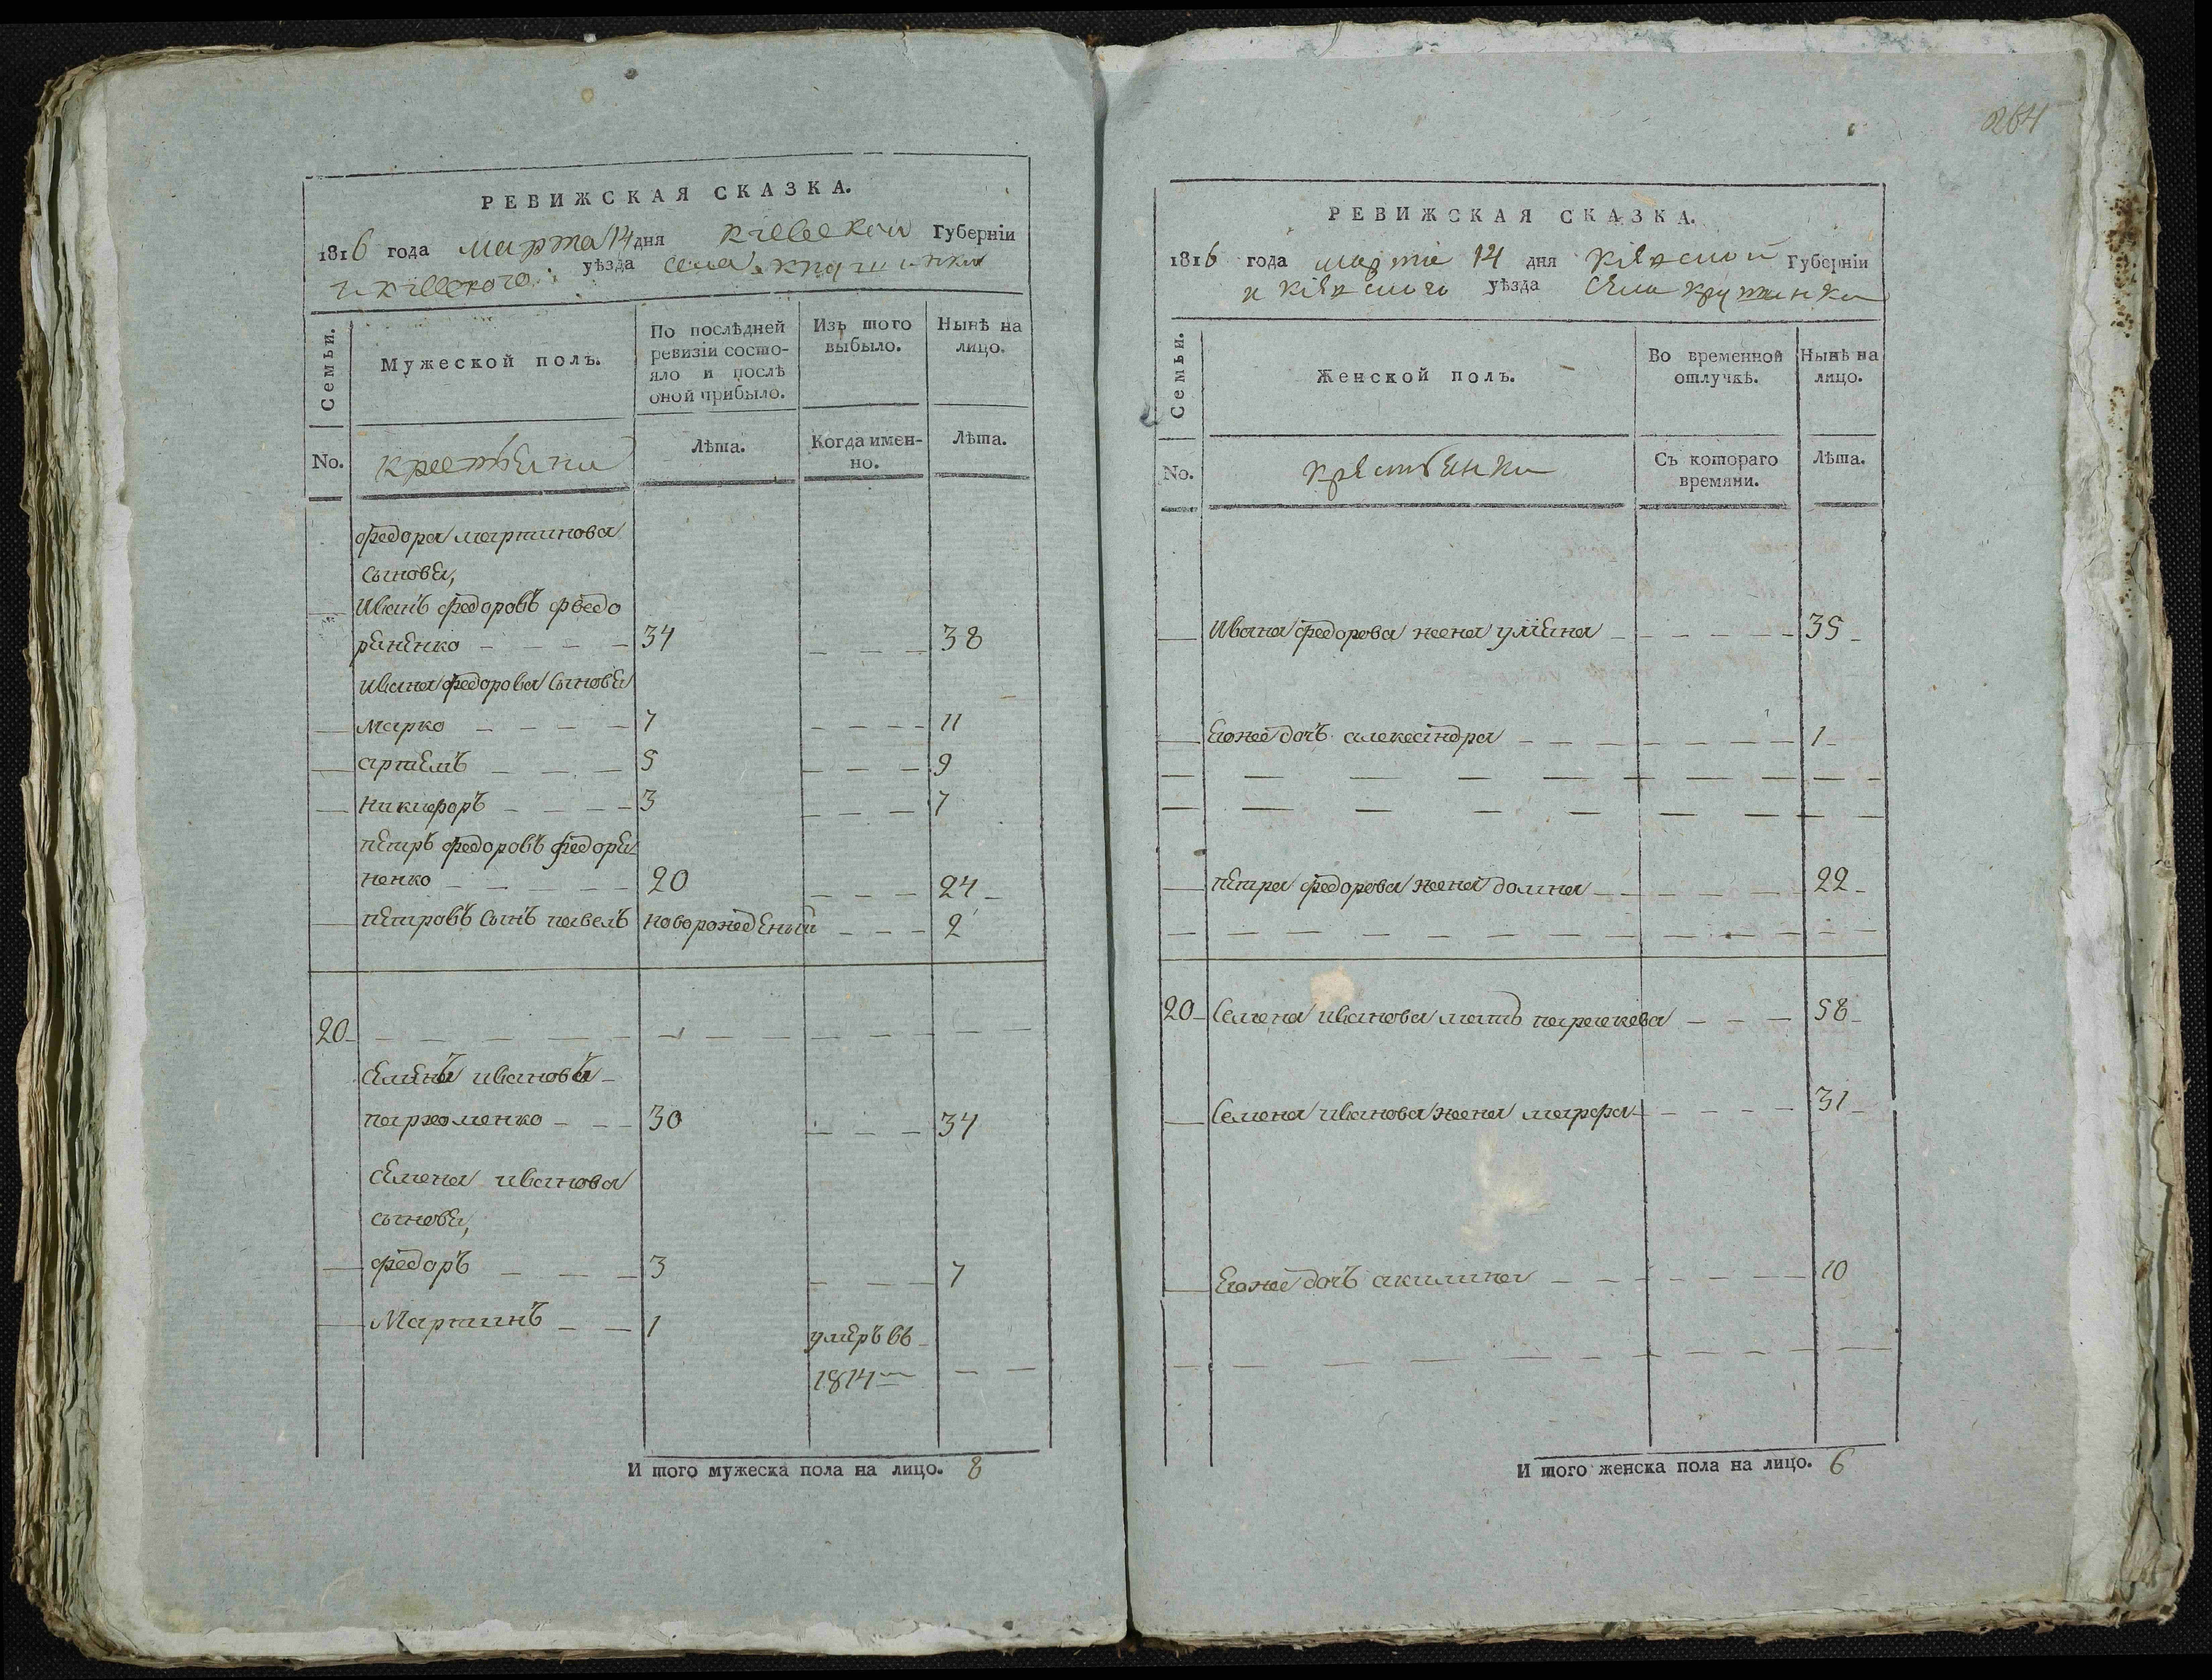 264
РЕВИЖСКАЯ СКАЗКА.
1816 года марта 14 дня Кіевской Губерніи
и Кіевского уѣзда села
Семьи.
Мужеской полъ.
По послѣдней
ревизіи состо-
яло и послѣ
оной прибыло.
Изъ того
выбыло.
Нынѣ на
лицо.
No.
крестьяни
Лѣта.
Когда имен-
но.
Лѣта.
федора мартинова
сыновя,
Иванъ федоровъ фведо
рененко 34 38
ивана федорова сыновя
Марко 7 11
артемъ 5 9
никифоръ 3 7
петръ федоровъ федоре
ненко 20 24
петровъ сынъ павелъ новорожеденый 2
20
семенъ ивановъ
пархоменко 30 34
семена иванова
сыновя,
федоръ 3 7
Мартинъ 1 умеръ въ
1814
И того мужеска пола на лицо. 8
РЕВИЖСКАЯ СКАЗКА.
1816 года марта 14 дня Кіевской Губерніи
и Кіевского уѣзда села
Семьи.
Женской полъ.
Во временной
отлучкѣ.
Нынѣ на
лицо.
No.
крестьянки
Съ котораго
времяни.
Лѣта.
Ивана федорова жена уляна 35
Егоже дочъ александра 1
петра федорова жена домна 22
20 Семена иванова мать параскева 58
Семена иванова жена марфа 31
Егоже дочъ акилина 10
И того женска пола на лицо. 6